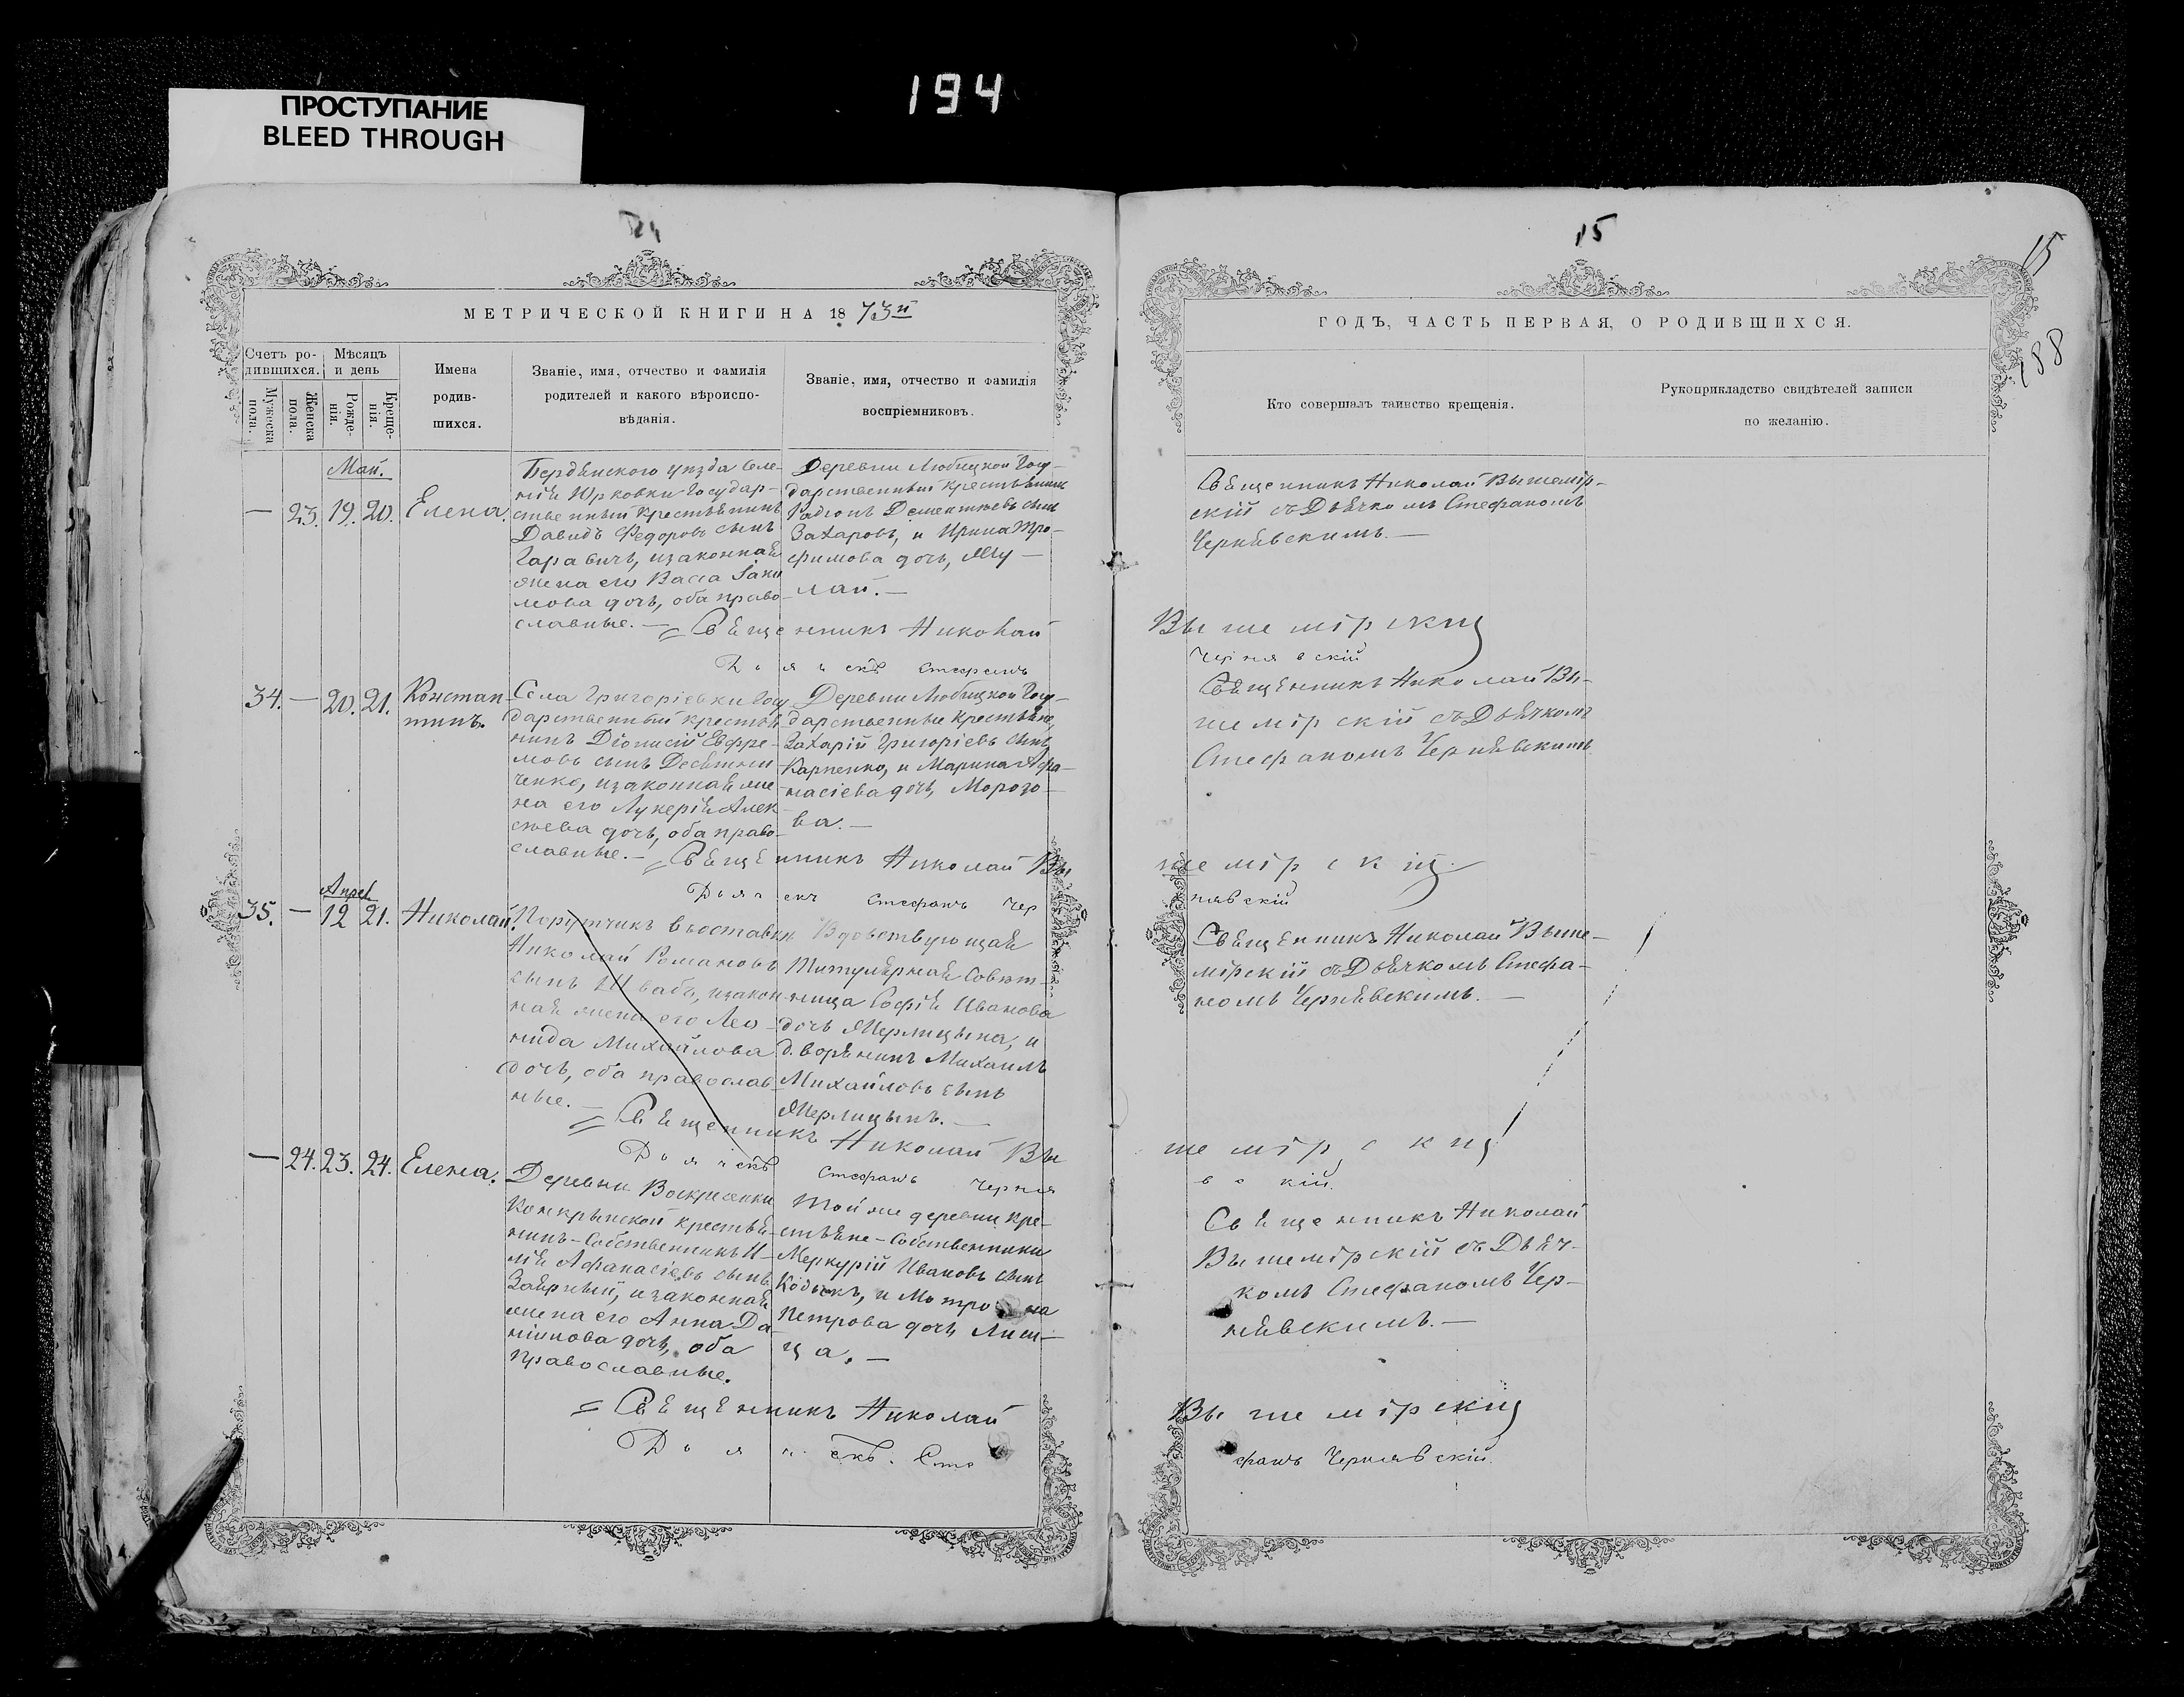 194
ПРОСТУПАНИЕ
BLEED THROUGH
МЕТРИЧЕСКОЙ КНИГИ НА 1873й
Счетъ ро-
дившихся.
Мѣсяцъ
и день
Мужеска
пола.
Женска
пола.
Рожде-
нія.
Креще-
нія.
Имена
родив-
шихся.
Званіе, имя, отчество и фамилія
родителей и какого вѣроиспо-
вѣданія.
Званіе, имя, отчество и фамилія
воспріемниковъ.
Май.
— 23. 19. 20. Елена.
Бердянского уѣзда Селе-
нія Юрковки Государ-
ственный крестьянинъ
Давидъ Федоровъ сынъ
Гаравичъ, и законная
жена его Васса Іаки
мова дочь, оба право-
славные. —
Деревни Любицкой Госу-
дарственный крестьянинъ
Радіонъ Дементьевъ сынъ
Захаровъ, и Ирина Тро-
фимова дочь,
лай. —
Священникъ Николай
Дьячекъ Стефанъ
34. — 20. 21. Констан-
тинъ.
Села Григоріевки Госу
дарственный крестья
нинъ Діонисій Евфре-
мовъ сынъ
ченко, и законная же-
на его Лукерія Алек-
сѣева дочь, оба право-
славные. —
Деревни Любицкой Госу-
дарственные крестьяне,
Захарій Григоріевъ сынъ
Карпенко, и Марина Афа-
насіева дочь, Морозо-
ва. —
Священникъ Николай Вы
Дьячекъ Стефанъ Чер
Апрел
35. — 12 21. Николай.
Порутчикъ в ъоставкѣ
Николай Романовъ
сынъ Шваб, и закон-
ная жена его Лео-
нида Михайлова
дочь, оба православ-
ные. —
Вдовствующая
Титулярная Совѣт-
ница Софія Иванова
дочь Мерлицына, и
дворянинъ Михаилъ
Михайловъ сынъ
Мерлицынъ. —
Священникъ Николай Вы
Дьячекъ Стефанъ Черня
— 24. 23. 24. Елена.
Деревни Воскресенки
Конкрынской крестья-
нинъ-Собственникъ И-
лія Афанасіевъ сынъ
и законная
жена его Анна Да-
ніилова дочь, оба
православные.
Той же деревни кре-
стьяне-Собственники
Меркурій Ивановъ сынъ
и Мотрона
Петрова дочь Лиси-
ца. —
Священникъ Николай
Дьячекъ. Сте
15
15
188
ГОДЪ, ЧАСТЬ ПЕРВАЯ, О РОДИВШИХСЯ.
Кто совершалъ таинство крещенія.
Рукоприкладство свидѣтелей записи
по желанію.
Священникъ Николай Вышемір-
скій съ Дьячкомъ Стефаномъ
Чернявскимъ. —
Вышемірскій
Чернявскій
Священникъ Николай Вы-
шемірскій съ Дьячкомъ
Стефаномъ Чернявскимъ
шемірскій
нявскій
Священникъ Николай Выше-
мірскій съ Дьячкомъ Стефа-
номъ Чернявскимъ. —
шемірскій
вскій.
Священникъ Николай
Вышемірскій съ Дьяч-
комъ Стефаномъ Чер-
нявскимъ. —
Вышемірскій
фанъ Чернявскій.